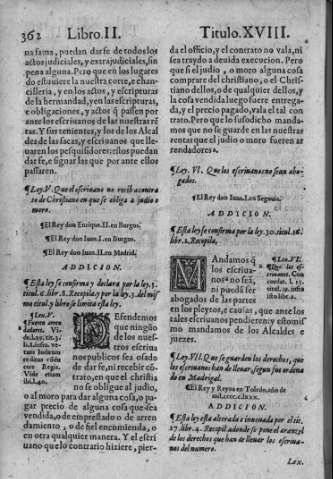 362 Libro.II. Titulo.XVIII.
na fama, puedan darse de todos los
actos judiciales, y extrajudiciales, sin
pena alguna. Pero que en los lugares
do estuuiere la nuestra corte, e chan-
cilleria, y en los actos, y escripturas
de la hermandad, y en las escripturas,
e obligaciones, y actos q̃ passen por
ante los escriuanos de las nuestras rē
tas. Y sus tenientes, y los de los Alcal
des de las sacas, y escriuanos que lle-
uaren los pesquisidores: estos puedan
dar fe, e signar las que por ante ellos
passaren.
¶Ley.V. Que el escriuano no reciba contra
to de Christiano en que se obliga a judio o
moro.
¶El Rey don Enrique.II.en Burgos.
¶El Rey don Iuan.I.en Burgos.
¶El Rey don Iuan.II.en Madrid.
ADDICION.
¶Esta ley se confirma y declara por la ley.5.
titul.6.libr.8.Recopila.y por la ley.3.del mis
mo titul.y libro se limita esta ley.
¶Ley.V.
DEfendemos
que ningũo
de los nues-
tros escriua
nos publicos sea osado
de dar fe, ni recebir cō-
trato, en que el christia
no se obligue al judio,
o al moro para dar alguna cosa, o pa-
gar precio de alguna cosa que sea
vendida, o de emprestado o de arren
damiento, o de fiel encomienda, o
en otra qualquier manera. Y el escri
uano que lo contrario hiziere, pier-
da el officio, y el contrato no vala, ni
sea traydo a deuida execucion. Pero
que si el judio, o moro alguna cosa
comprare del christiano, o el Christ-
iano dellos, o de qualquier dellos, y
la cosa vendida luego fuere entrega-
da, y el precio pagado, vala el tal con
trato. Pero que lo susodicho manda-
mos que no se guarde en las nuestras
rentas que el judio o moro fueren ar
rendadores.
¶Ley. VI. Que los escriuanos no sean abo-
gados.
¶El Rey don Iuan.I.en Segouia.
ADDICION.
¶Esta ley se confirma por la ley.30.titul.16.
libr.2.Recopila.
MAndamos q̃
los escriua-
nos no seã,
ni puedã ser
abogados de las partes
en los pleytos, e causas, que ante los
tales escriuanos pendieren: y esto mis
mo mandamos de los Alcaldes e
juezes.
¶Ley.VI.
¶Ley.VII.Que se guarden los derechos, que
los escriuanos han de lleuar segun fue ordena
do en Madrigal.
¶El Rey y Reyna en Toledo, año de
mil.cccc.lxxx.
ADDICION.
¶Esta ley esta alterada e innouada por el tit.
27.libr.4. Recopil. adonde se pone el aranzel
de los derechos que han de lleuar los escriua-
nos del numero.
Ley.